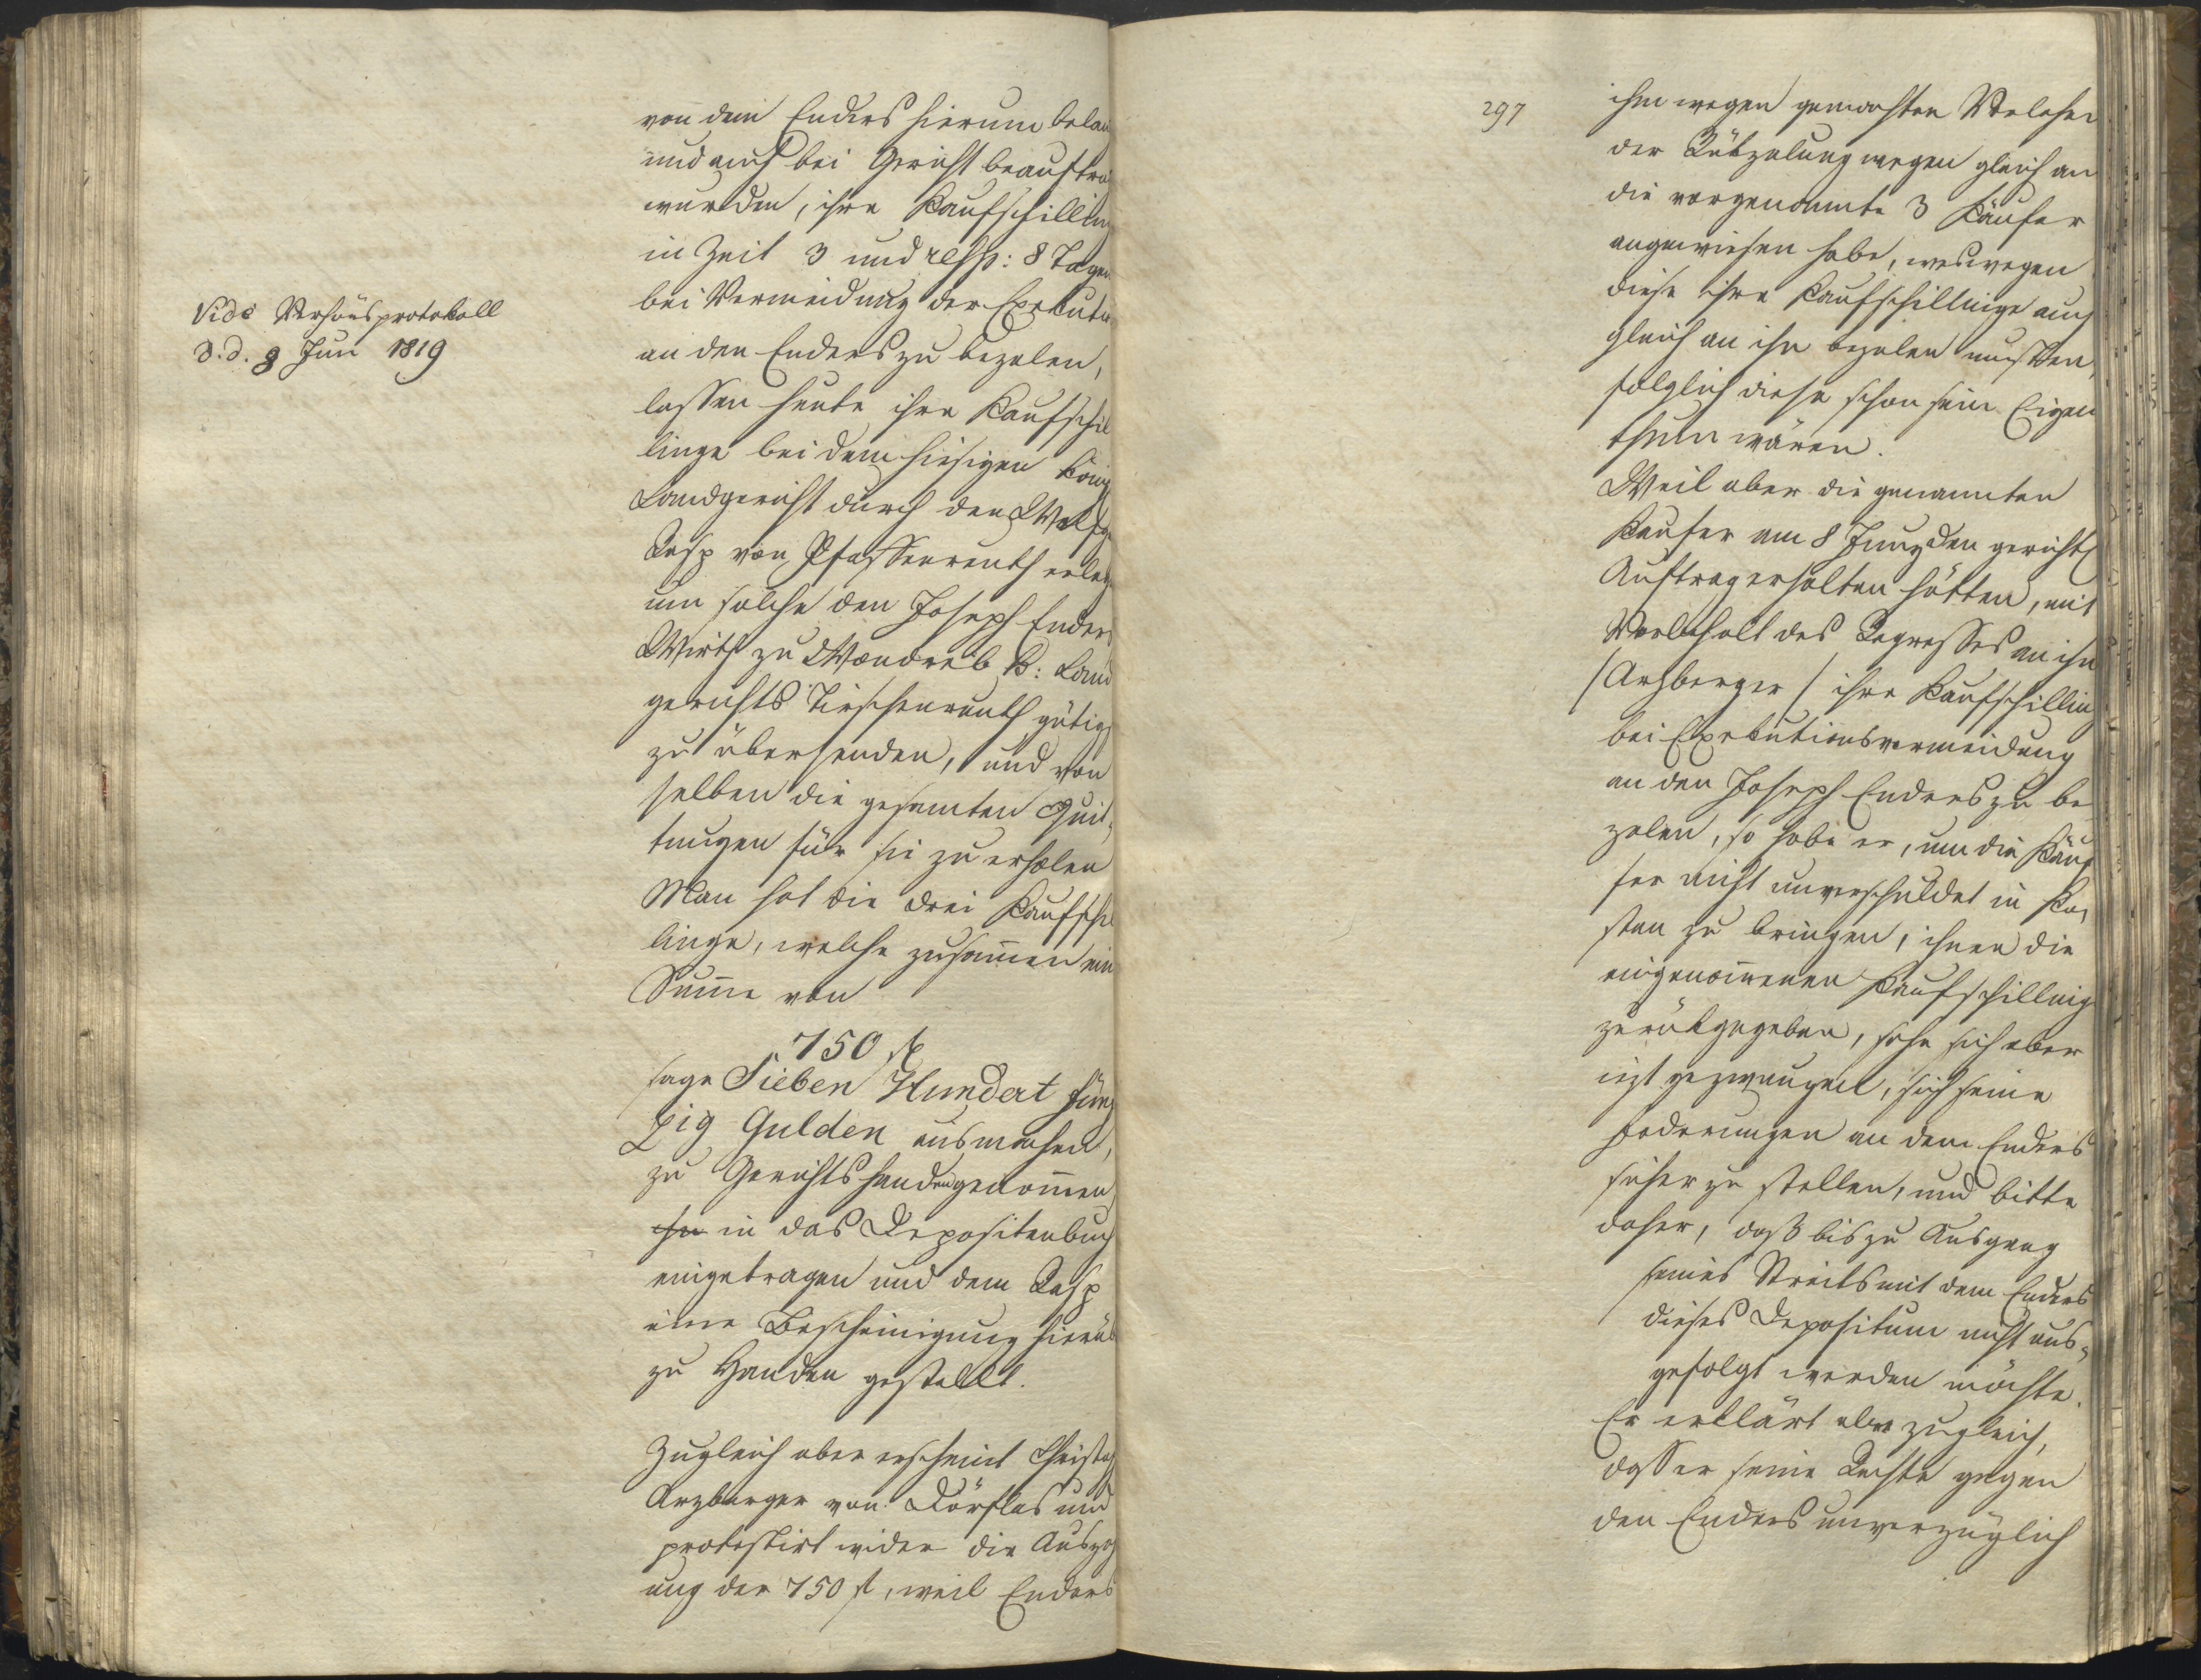 Vide Verhörsprotokoll
d. d. 8 Jun 1819
von dem Enders hierum belan
und auch bei Gericht beauftra
wurden, ihre Kaufschilling
in Zeit 3 und resp: 8 Tagen
bei Vermeidung der Exekuti
an den Enders zu bezalen,
lassen heute ihre Kaufschil
linge bei dem hiesigen könig
Landgericht durch den Wolfg
Rasp von Pfaffenreuth erleg
um solche dem Joseph Enders
Wirth zu Wondreb K: Land
gerichts Tirschenreuth gütigst
zu übersenden, und von
selben die gesamten Quit¬
tungen für sie zu erholen
Man hat die drei Kaufschil
linge, welche zusam̄en ein
Sum̄e von
750 fl
sage Sieben Hundert fünf
zig Gulden ausmachen,
zu Gerichtshanden genom̄en
in das Depositenbuch
eingetragen und dem Rasp
eine Bescheinigung hierüb
zu Handen gestellt.
Zugleich aber erscheint Christoph
Arzberger von Dörflas und
protestirt wider die Auszah
ung der 750 fl, weil Enders
297
ihm wegen gemachten
der Rükzalung wegen gleich an
die vorgenannte 3 Käufer
angewiesen habe, weswegen
diese ihre Kaufschillinge auch
gleich an ihn bezalen mussten,
folglich diese schon sein Eigen
thum wären.
Weil aber die genannten
Kaufer am 8 Juny den gerichtl
Auftrag erhalten hätten, mit
Vorbehalt des Regresses an ihn
/Arzberger/ ihre Kaufschilling
bei Exekutionsvermeidung
an den Joseph Enders zu be
zalen, so habe er, um die Käuf
fer nicht unverschuldet in Ko¬
sten zu bringen, ihnen die
eingenom̄enen Kaufschilling
zurükgegeben, sehe sich aber
izt gezwungen, sich seine
Foderungen an dem Enders
sicher zu stellen, und bitte
daher, daß bis zu Ausgang
seines Streits mit dem Enders
dieses Depositum nicht aus¬
gefolgt werden möchte.
Er erklärt aber zugleich,
dass er seine Rechte gegen
den Enders unverzüglich